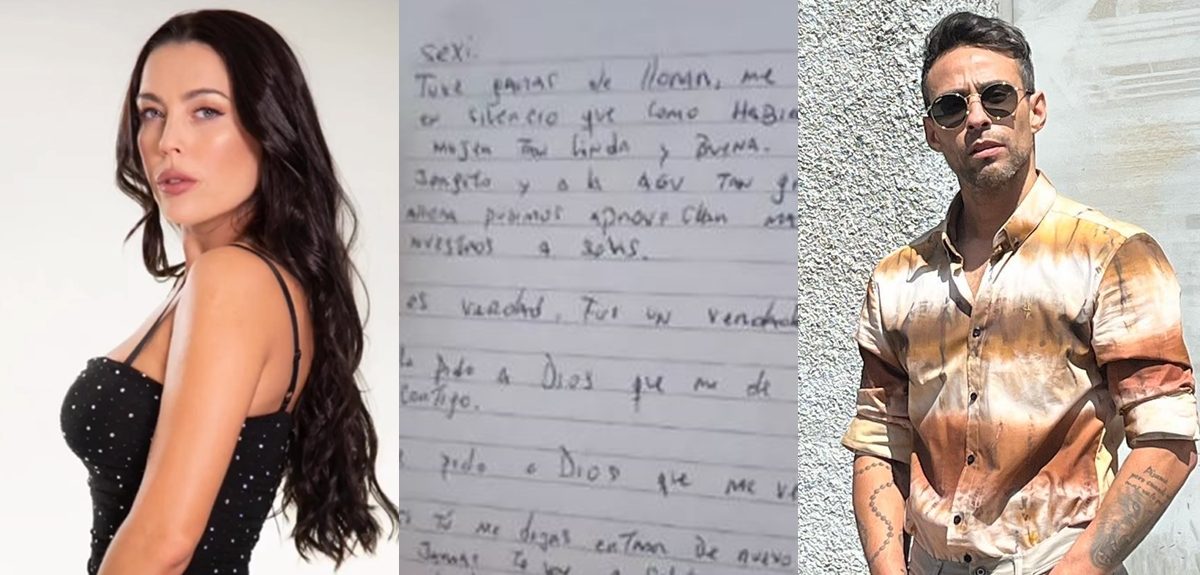 sexi.
Tuve ganas de lloran, me
en silencio que como Habia
mujer Tan linda y Buena.
Jonpito y a la AGU Tan g
ahora pudimos aprovechan ma
nuestros a solas.
es verdad, Fui un verdade
pido a Dios que me de
contigo.
pido a Dios que me ve
Tú me dejas entran de nuevo
Jamas